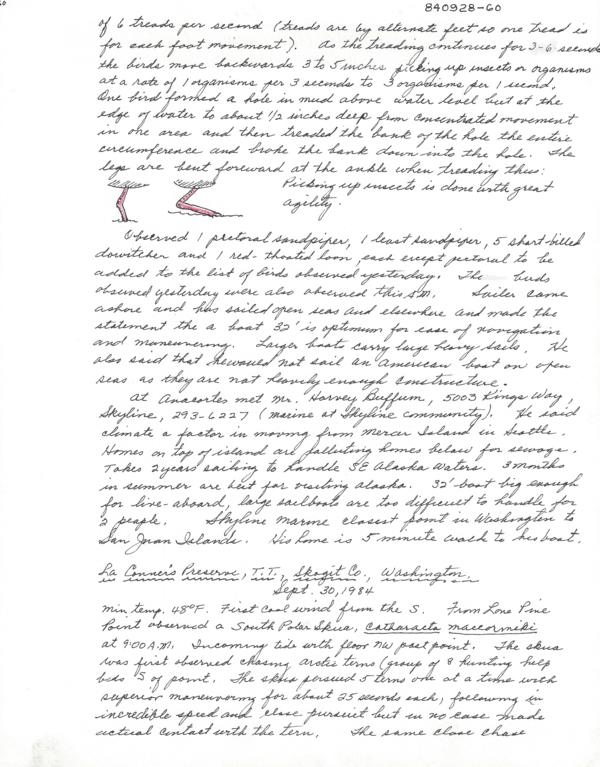 840928-60
of 6 treads per second (treads are by alternate feet so one tread is
for each foot movement). As the treading continues for 3-6 seconds
the birds move backwards 3 to 5 inches picking up insects or organisms
at a rate of 1 organisms per 3 seconds to 3 organisms per 1 second.
One bird formed a hole in mud above water level but at the
edge of water to about 1/2 inches deep from consentrated movement
in one area and then treaded the bank of the hole the entire
circumference and broke the bank down into the hole. The
legs are bent foreward at the ankle when treading thus:
Picking up insects is done with great
agility.
Observed 1 pectoral sandpiper, 1 least sandpiper, 5 short-billed
dowitcher and 1 red-thoated loon, each except pectoral to be
added to the list of birds observed yesterday. The birds
observed yesterday were also observed this A.M. Sailer came
ashore and has sailed open seas and elsewhere and made the
statement the a boat 32' is optimum for ease of navigation
and maneuvering. Larger boats carry large heavy sails. He
also said that he would not sail an American boat on open
seas as they are not heavily enough constructure.
At Anacortes met Mr. Harvey Buffum, 5003 Kings Way,
Skyline, 293-6227 (marine at Skyline community). He said
climate a factor in moving from Mercer Island in Seattle.
Homes on top of island are polluting homes below for sewage.
Takes 2 years sailing to handle SE Alaska waters. 3 months
in summer are best for visiting Alaska. 32' boat big enough
for live-aboard, large sailboats are too difficult to handle for
2 people. Skyline Marine closest point in Washington to
San Juan Islands. His home is 5 minute walk to his boat.
La Conner's Preserve, T.T., Skagit Co., Washington.
Sept. 30, 1984
Min. temp. 48°F. First cool wind from the S. From Lone Pine
Point observed a South Polar Skua, Catharacta maccormiki
at 9:00 A.M. Incoming tide with floor NW past point. The skua
was first observed chasing arctic terns (group of 8 hunting kelp
beds S of point. The skua pursued 5 terns one at a time with
superior maneuvoring for about 25 seconds each, following in
incredible speed and close pursuit but in no case made
actual contact with the tern. The same close chase